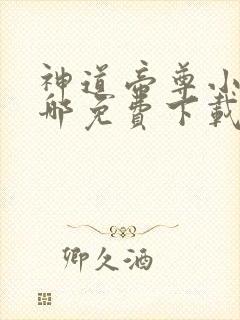 神道帝尊小
那免费下载
卿久酒